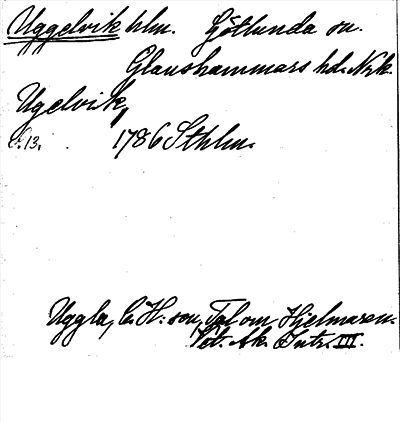 Uggelvik hlm. Götlunda sn.
Glanshammars hd. Nrk.
Ugelvik,
s. 13. 1786 Sthlm.
Uggla, C. H:son, Tal om Hjelmaren.
Vet. Ak. Intr. III.